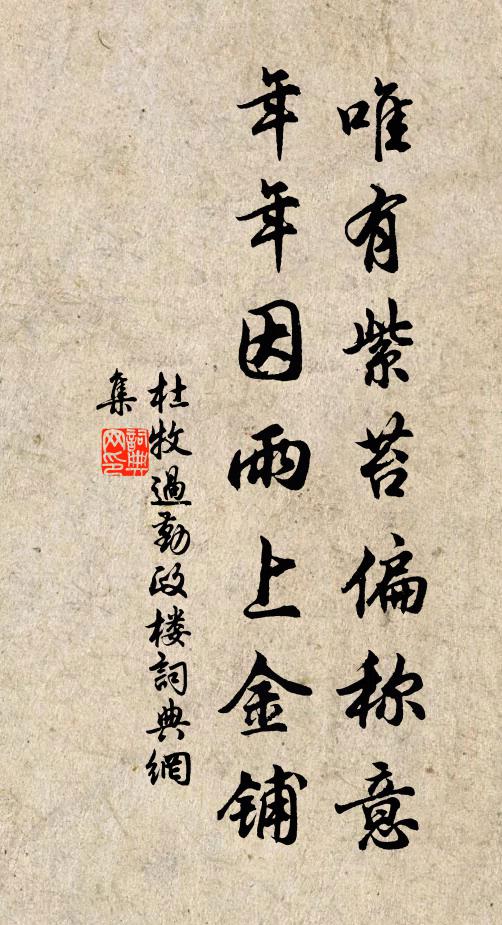 唯有紫苔偏称意
年年因雨上金铺
杜牧過勤政楼詞典網
集
詞典
网印